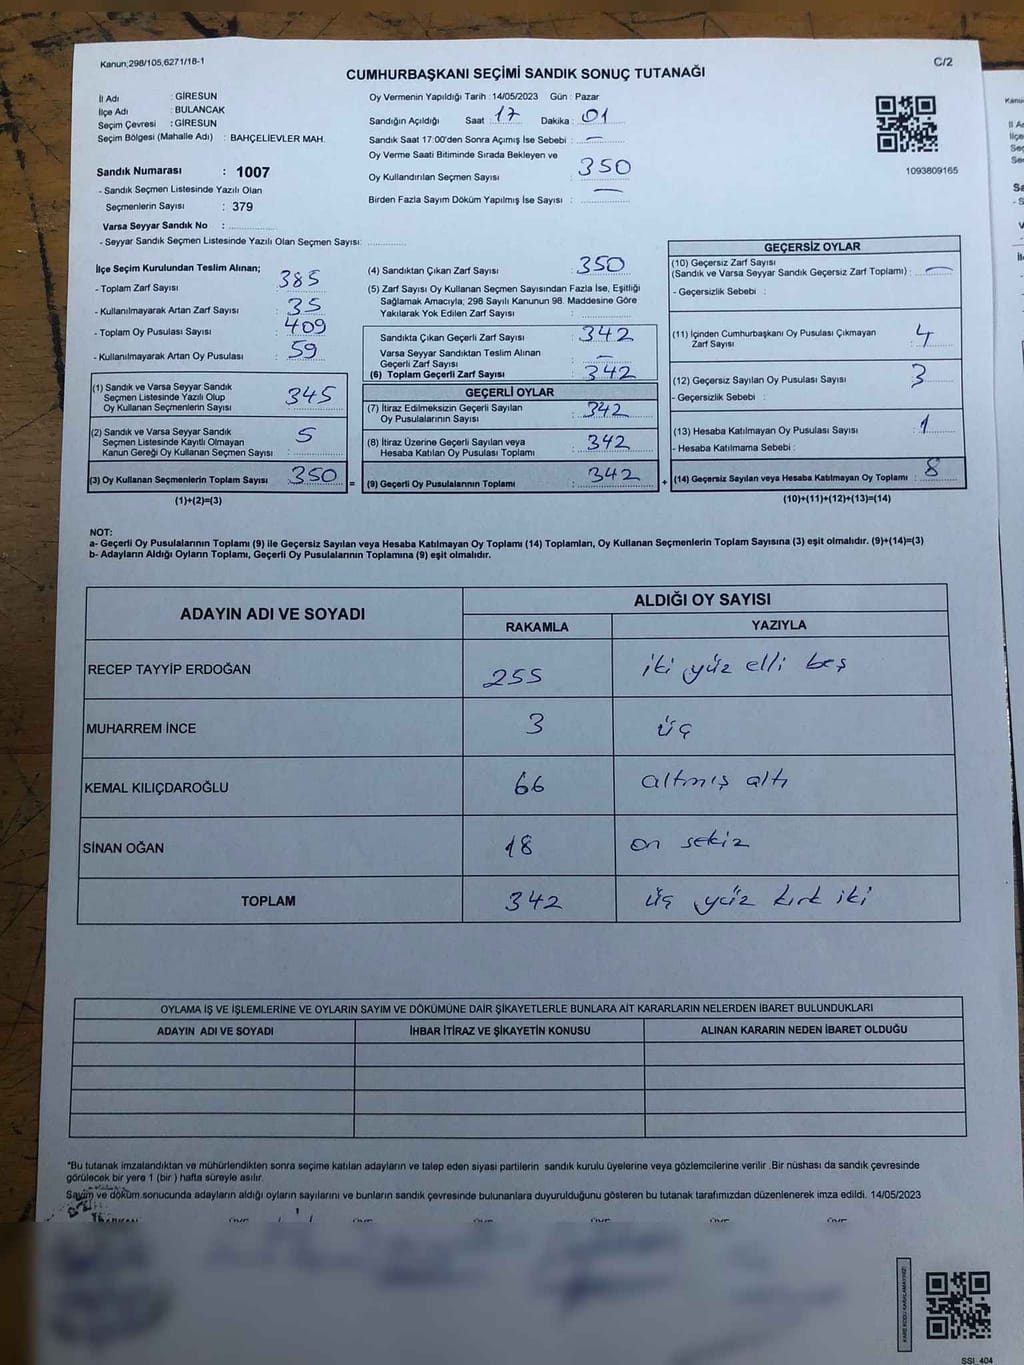 Kanun;298/105,6271/18-1
C/2
CUMHURBAŞKANI SEÇİMİ SANDIK SONUÇ TUTANAĞI
İl Adı : GİRESUN
İlçe Adı : BULANCAK
Seçim Çevresi : GİRESUN
Seçim Bölgesi (Mahalle Adı) : BAHÇELİEVLER MAH.
Sandık Numarası : 1007
- Sandık Seçmen Listesinde Yazılı Olan
Seçmenlerin Sayısı : 379
Varsa Seyyar Sandık No :
- Seyyar Sandık Seçmen Listesinde Yazılı Olan Seçmen Sayısı:
Oy Vermenin Yapıldığı Tarih : 14/05/2023 Gün : Pazar
Sandığın Açıldığı Saat : 17 Dakika : 01
Sandık Saat 17:00'den Sonra Açımış İse Sebebi : —
Oy Verme Saati Bitiminde Sırada Bekleyen ve
Oy Kullandırılan Seçmen Sayısı : 350
Birden Fazla Sayım Döküm Yapılmış İse Sayısı : —
1093809165
İlçe Seçim Kurulundan Teslim Alınan;
- Toplam Zarf Sayısı : 385
- Kullanılmayarak Artan Zarf Sayısı : 35
- Toplam Oy Pusulası Sayısı : 409
- Kullanılmayarak Artan Oy Pusulası : 59
(1) Sandık ve Varsa Seyyar Sandık
Seçmen Listesinde Yazılı Olup
Oy Kullanan Seçmenlerin Sayısı : 345
(2) Sandık ve Varsa Seyyar Sandık
Seçmen Listesinde Kayıtlı Olmayan
Kanun Gereği Oy Kullanan Seçmen Sayısı : 5
(3) Oy Kullanan Seçmenlerin Toplam Sayısı : 350 =
(1)+(2)=(3)
(4) Sandıktan Çıkan Zarf Sayısı : 350
(5) Zarf Sayısı Oy Kullanan Seçmen Sayısından Fazla İse, Eşitliği
Sağlamak Amacıyla; 298 Sayılı Kanunun 98. Maddesine Göre
Yakılarak Yok Edilen Zarf Sayısı :
Sandıkta Çıkan Geçerli Zarf Sayısı : 342
Varsa Seyyar Sandıktan Teslim Alınan
Geçerli Zarf Sayısı : —
(6) Toplam Geçerli Zarf Sayısı : 342
GEÇERLİ OYLAR
(7) İtiraz Edilmeksizin Geçerli Sayılan
Oy Pusulalarının Sayısı : 342
(8) İtiraz Üzerine Geçerli Sayılan veya
Hesaba Katılan Oy Pusulası Toplamı : 342
(9) Geçerli Oy Pusulalarının Toplamı : 342 +
GEÇERSİZ OYLAR
(10) Geçersiz Zarf Sayısı
(Sandık ve Varsa Seyyar Sandık Geçersiz Zarf Toplamı) : —
- Geçersizlik Sebebi :
(11) İçinden Cumhurbaşkanı Oy Pusulası Çıkmayan
Zarf Sayısı : 4
(12) Geçersiz Sayılan Oy Pusulası Sayısı : 3
- Geçersizlik Sebebi :
(13) Hesaba Katılmayan Oy Pusulası Sayısı : 1
- Hesaba Katılmama Sebebi :
(14) Geçersiz Sayılan veya Hesaba Katılmayan Oy Toplamı : 8
(10)+(11)+(12)+(13)=(14)
NOT:
a- Geçerli Oy Pusulalarının Toplamı (9) ile Geçersiz Sayılan veya Hesaba Katılmayan Oy Toplamı (14) Toplamları, Oy Kullanan Seçmenlerin Toplam Sayısına (3) eşit olmalıdır. (9)+(14)=(3)
b- Adayların Aldığı Oyların Toplamı, Geçerli Oy Pusulalarının Toplamına (9) eşit olmalıdır.
ADAYIN ADI VE SOYADI ALDIĞI OY SAYISI
RAKAMLA YAZIYLA
RECEP TAYYİP ERDOĞAN 255 iki yüz elli beş
MUHARREM İNCE 3 üç
KEMAL KILIÇDAROĞLU 66 altmış altı
SİNAN OĞAN 18 on sekiz
TOPLAM 342 üç yüz kırk iki
OYLAMA İŞ VE İŞLEMLERİNE VE OYLARIN SAYIM VE DÖKÜMÜNE DAİR ŞİKAYETLERLE BUNLARA AİT KARARLARIN NELERDEN İBARET BULUNDUKLARI
ADAYIN ADI VE SOYADI İHBAR İTİRAZ VE ŞİKAYETİN KONUSU ALINAN KARARIN NEDEN İBARET OLDUĞU
*Bu tutanak imzalandıktan ve mühürlendikten sonra seçime katılan adayların ve talep eden siyasi partilerin sandık kurulu üyelerine veya gözlemcilerine verilir .Bir nüshası da sandık çevresinde
görülecek bir yere 1 (bir ) hafta süreyle asılır.
Sayım ve döküm sonucunda adayların aldığı oyların sayılarını ve bunların sandık çevresinde bulunanlara duyurulduğunu gösteren bu tutanak tarafımızdan düzenlenerek imza edildi. 14/05/2023
KARE KODU KARALAMAYINIZ!
SSI_404